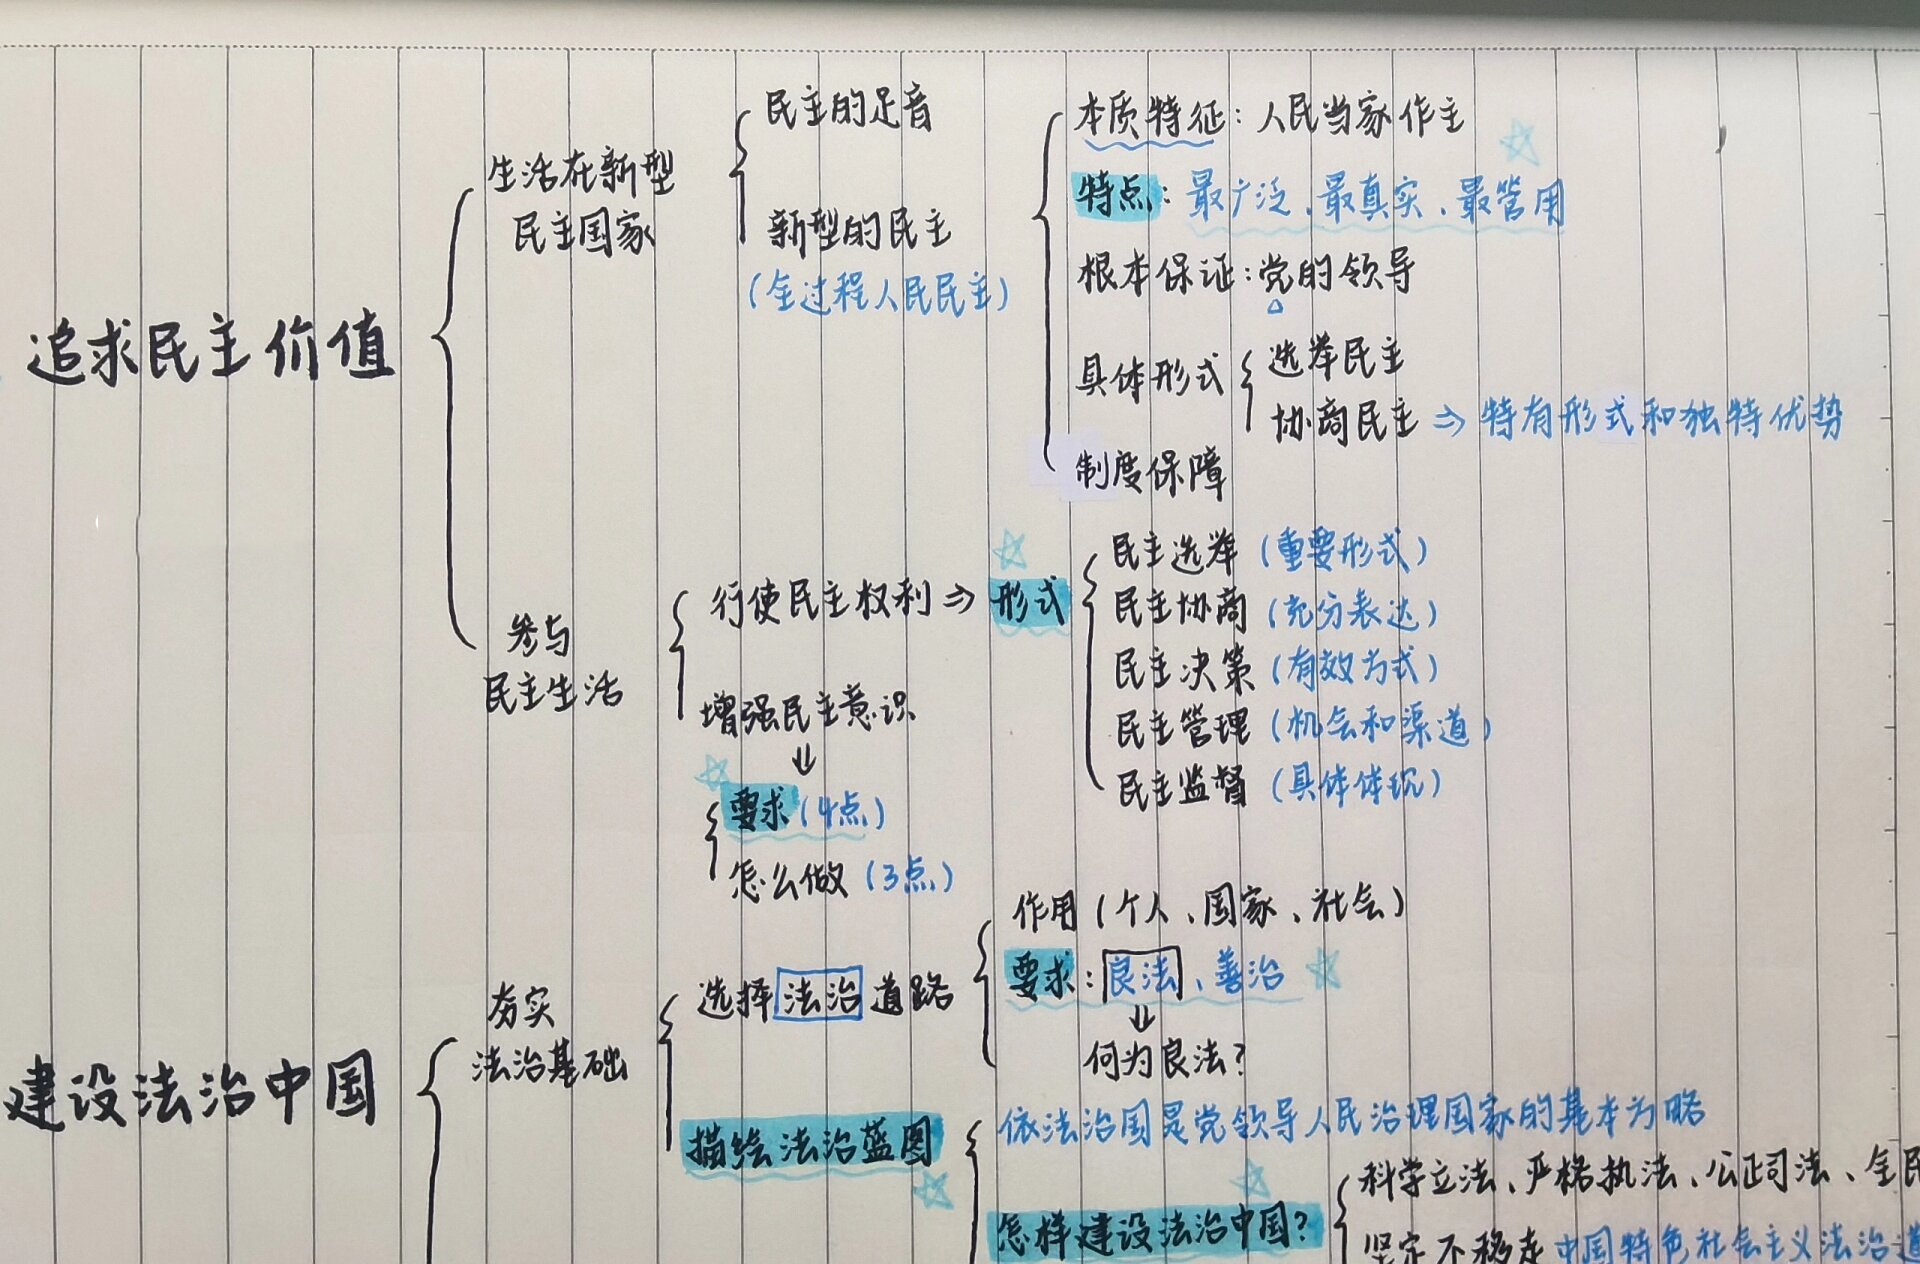 追求民主价值
生活在新型
民主国家
民主的足音
新型的民主
(全过程人民民主)
本质特征：人民当家作主
特点：最广泛、最真实、最管用
根本保证：党的领导
具体形式
选举民主
协商民主⇒特有形式和独特优势
制度保障
参与
民主生活
行使民主权利⇒形式
民主选举(重要形式)
民主协商(充分表达)
民主决策(有效方式)
民主管理(机会和渠道)
民主监督(具体体现)
增强民主意识
⇓
要求(4点)
怎么做(3点)
建设法治中国
夯实
法治基础
选择法治道路
作用(个人、国家、社会)
要求：良法、善治
⇓
何为良法？
描绘法治蓝图
依法治国是党领导人民治理国家的基本方略
怎样建设法治中国？
科学立法、严格执法、公正司法、全民
坚定不移走中国特色社会主义法治道